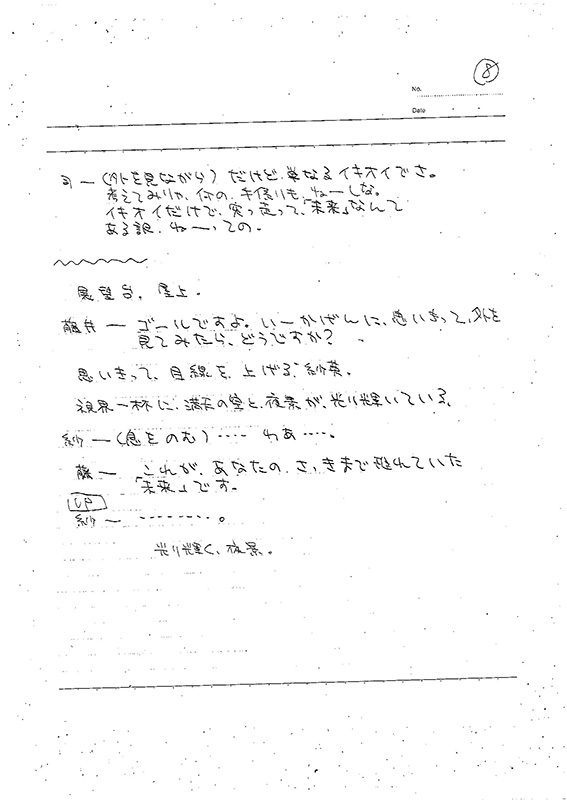 ⑧
No.
Date
ヨー(外を見ながら) だけど、単なるイキオイでさ。
考えてみりゃ、何の、手張りも、ねーしな。
イキオイだけで、突っ走って、「未来」なんて
ある訳、ねーっての。
展望台、屋上。
藤井ー ゴールですよ。いーかげんに、思いきって、外を
見てみたら、どうですか?
思いきって、目線を、上げる、紗英。
視界一杯に、満天の空と、夜景が、光り輝いている、
紗ー(息をのむ)‥‥ わあ‥‥。
藤ー これが、あなたの、さっきまで恐れていた
「未来」です。
UP
紗ー ‥‥‥‥。
光り輝く、夜景。